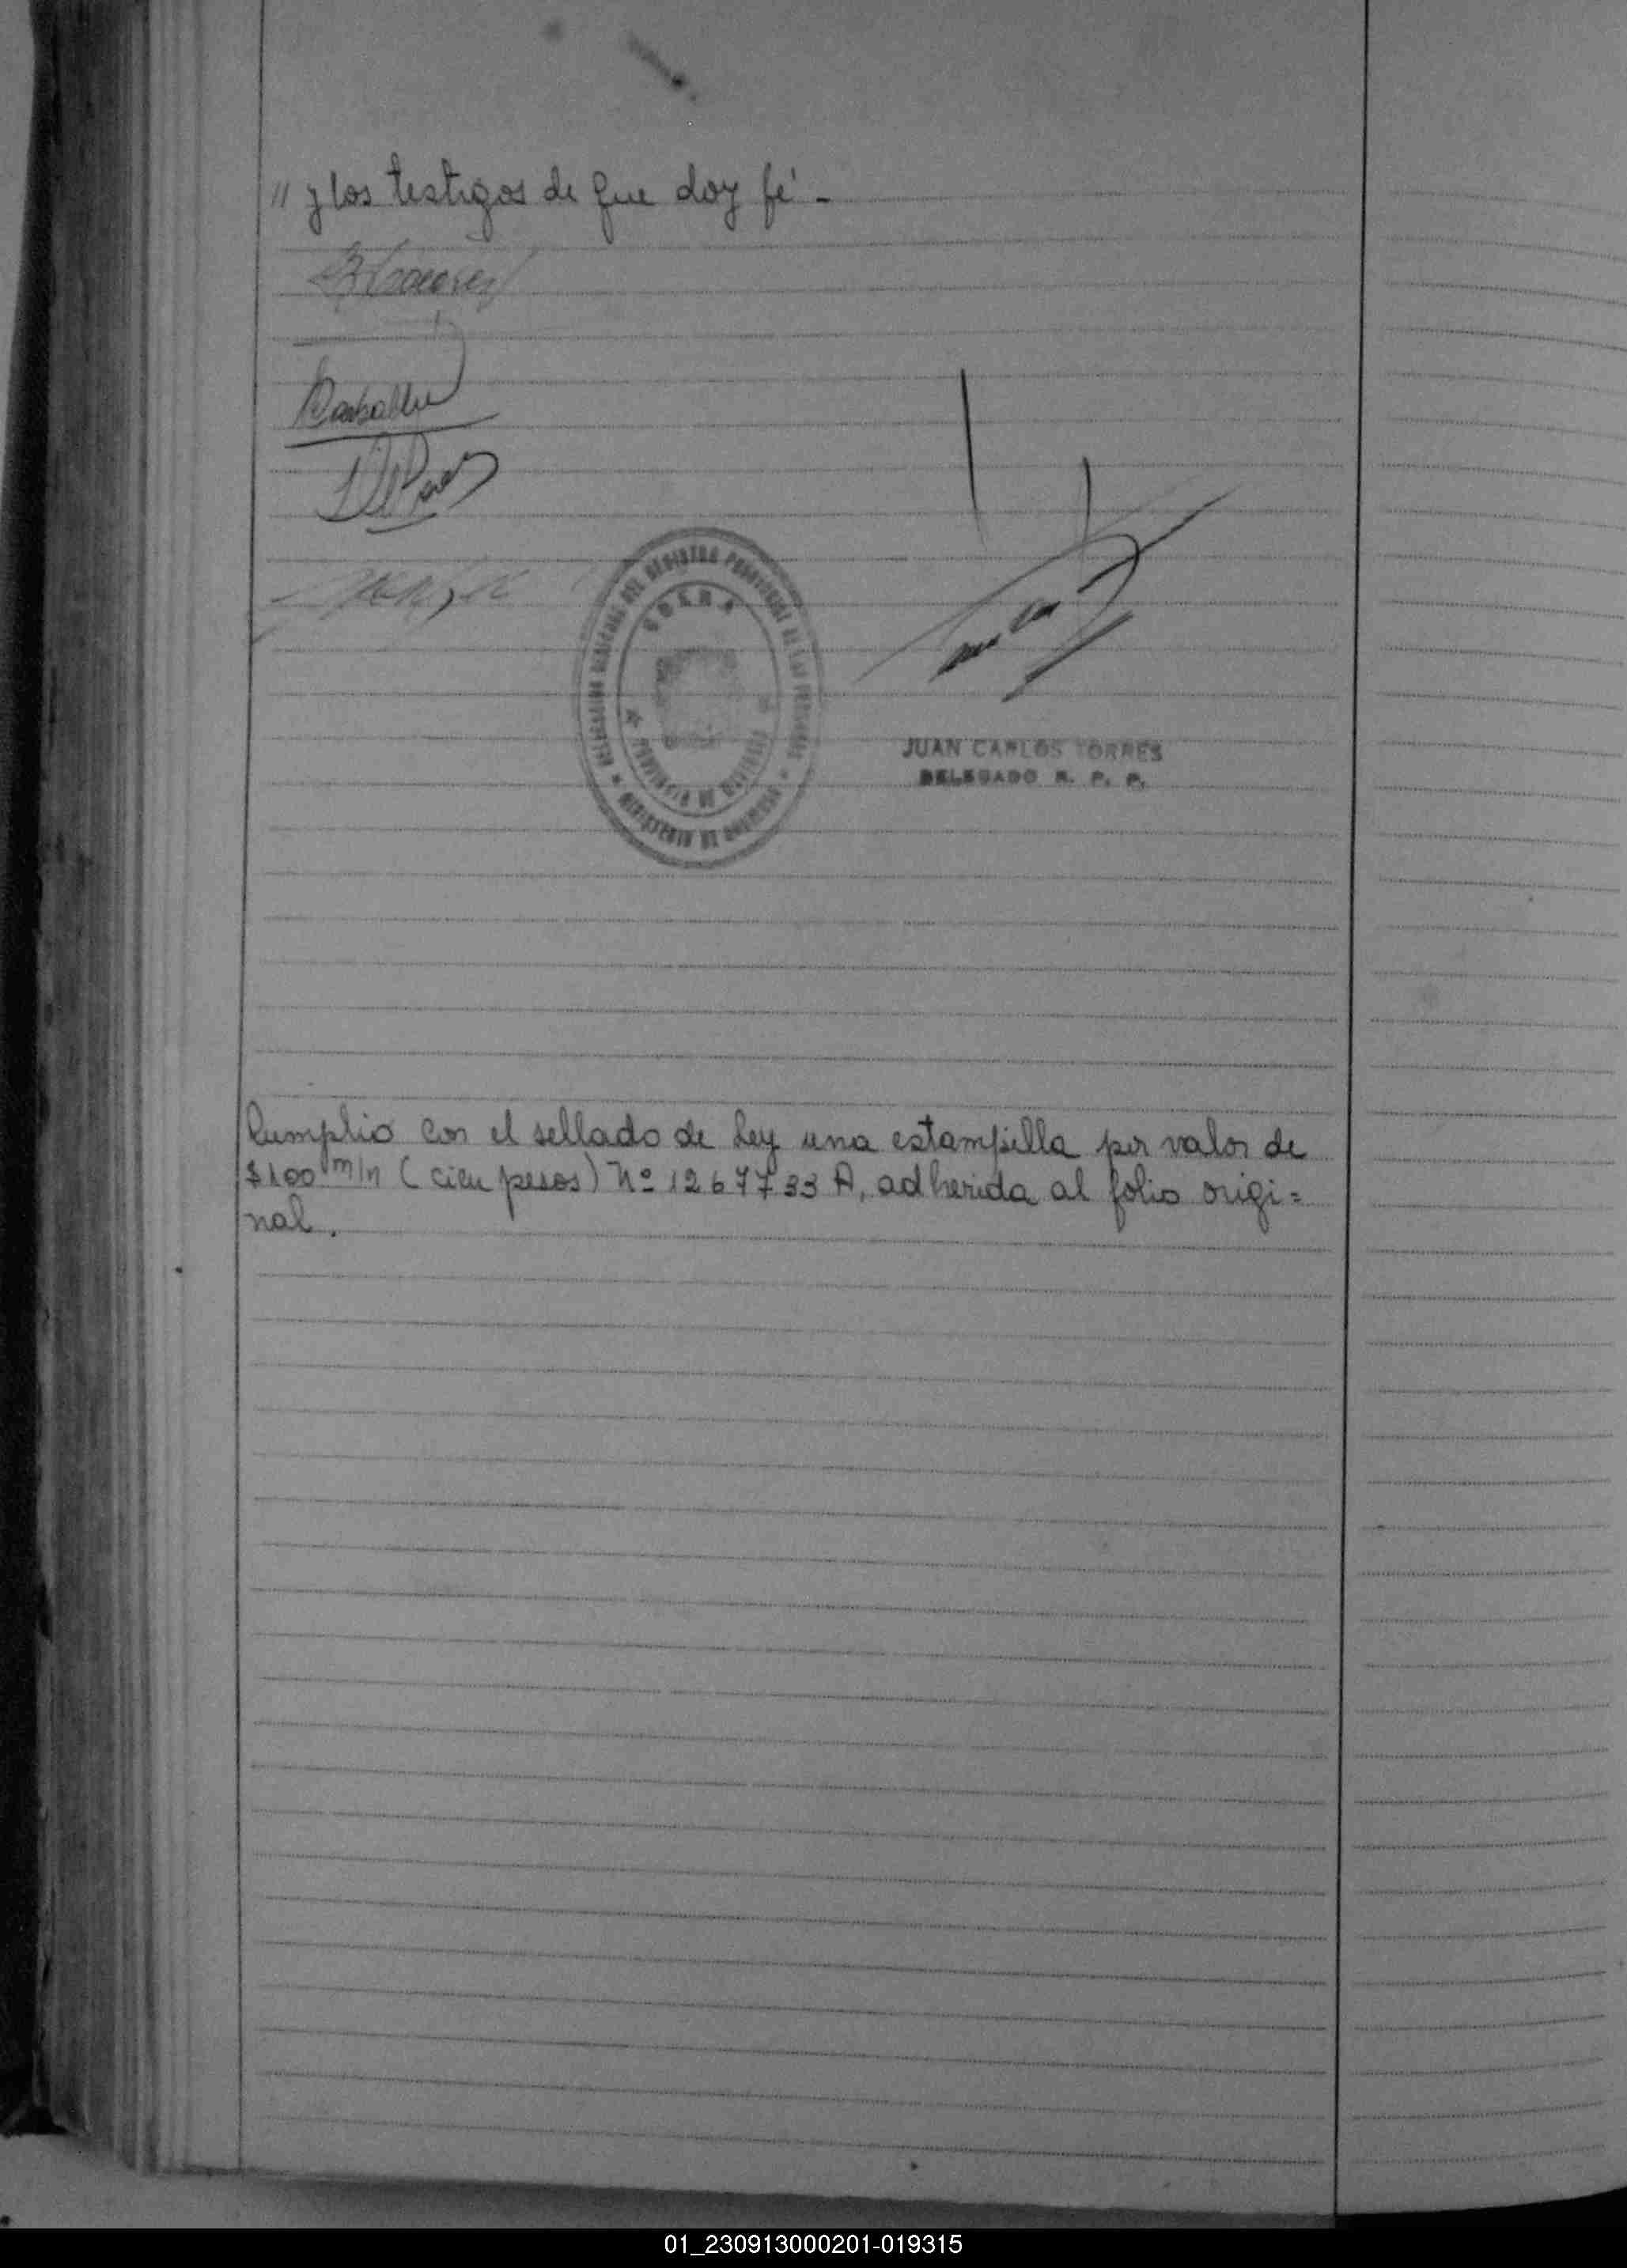 " y los testigos de que doy fé -
Carballo
DELEGACION REGIONAL DEL REGISTRO PROVINCIAL DE LAS PERSONAS
MINISTERIO DE GOBIERNO
PROVINCIA DE
JUAN CARLOS TORRES
DELEGADO R. P. P.
Cumplio con el sellado de Ley una estampilla por valor de
$100 m/n (cien pesos) Nº 1267733 A, adherida al folio origi=
nal.
01_230913000201-019315